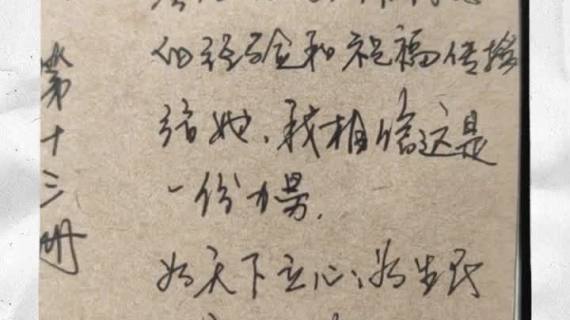 第十三册
的经验和祝福传播
给她,我相信这是
一份力量.
为天下立心、为生民